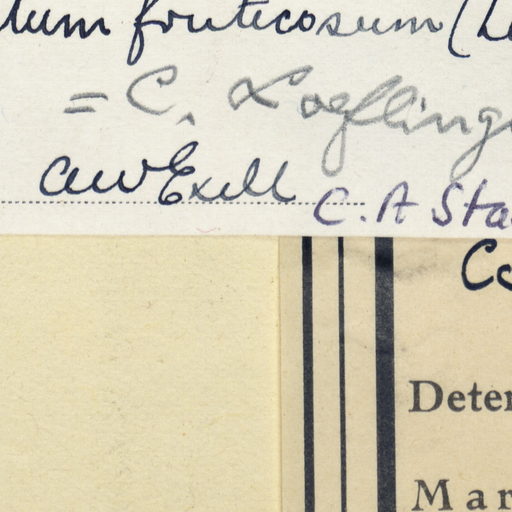 tum fruticosum (L
= C. Loefling
AWExell
C. A Sta
Co
Deter
Mar